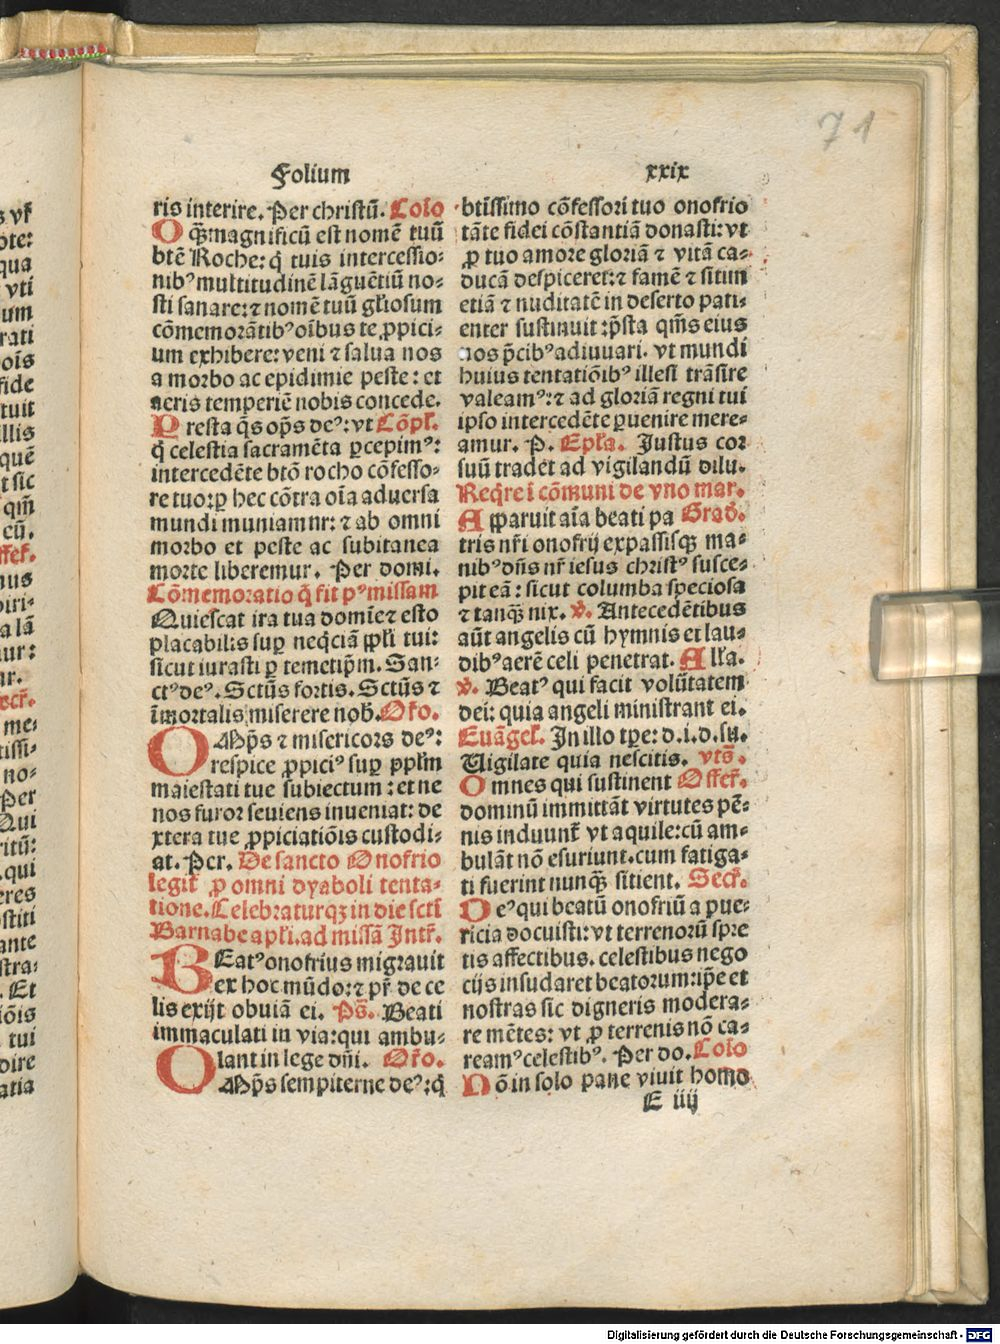 71
Folium xxix
ris interire. Per christū. Colo
O q̃ꝫ magnificū est nomē tuū
btē Roche: q̇ tuis intercessio⸗
nibꝰ multitudinē lāguētiū no⸗
sti sanare: ⁊ nomē tuū gl̓iosum
cōmemorātibꝰ oībus te ꝓpici⸗
um exhibere: veni ⁊ salua nos
a morbo ac epidimie peste: et
aeris temperiē nobis concede.
Presta q̄s op̄s deꝰ: vt Cōpl̓.
q̇ celestia sacramēta ꝑcepimꝰ:
intercedēte btō rocho cōfesso⸗
re tuo: ꝑ hec cōtra oīa aduersa
mundi muniamur: ⁊ ab omni
morbo et peste ac subitanea
morte liberemur. Per domi.
Cōmemoratio q̇ fit pꝰ missam
Quiescat ira tua domīe ⁊ esto
placabilis suꝑ neq̇ciā ppl̓i tui:
sicut iurasti ꝑ temetip̄m. San⸗
ctꝰ deꝰ. Sctūs fortis. Sctūs ⁊
īmortalis miserere nob̓. Or̓o.
OMp̄s ⁊ misericors deꝰ:
respice ꝓpiciꝰ suꝑ pplm̄
maiestati tue subiectum: et ne
nos furor seuiens inueniat: de
xtera tue ꝓpiciatiōis custodi⸗
at. Per. De sancto Onofrio
legit̓ ꝓ omni dyaboli tenta⸗
tione. Celebraturqꝫ in die sctī
Barnabe apl̓i. ad missā Intr̓.
BEatꝰ onofrius migrauit
ex hoc mūdo: ⁊ pr̓ de ce
lis exijt obuiā ei. Ps̄. Beati
immaculati in via: qui ambu⸗
lant in lege dn̄i. Or̓o.
OMp̄s sempiterne deꝰ: q̇
btīssimo cōfessori tuo onofrio
tāte fidei cōstantiā donasti: vt
ꝓ tuo amore gloriā ⁊ vitā ca⸗
ducā despiceret: ⁊ famē ⁊ sitim
etiā ⁊ nuditatē in deserto pati⸗
enter sustinuit: p̄sta q̄ms eius
nos p̄cibꝰ adiuuari. vt mundi
huius tentatiōibꝰ illesi trāsire
valeamꝰ: ⁊ ad gloriā regni tui
ipso intercedēte ꝑuenire mere⸗
amur. P. Epl̓a. Justus cor
suū tradet ad vigilandū dilu.
Req̇re ī cōmuni de vno mar.
Apparuit aīa beati pa Grad̓.
tris nr̓i onofrij expassisqꝫ ma⸗
nibꝰ dn̄s nr̓ iesus christꝰ susce⸗
pit eā: sicut columba speciosa
⁊ tanq̃ꝫ nix. ℣. Antecedētibus
aūt angelis cū hymnis et lau⸗
dibꝰ aerē celi penetrat. All̓a.
℣. Beatꝰ qui facit volūtatem
dei: quia angeli ministrant ei.
Euāgel̓. In illo tp̄e: d. i. d. su.
Vigilate quia nescitis. vts̄.
Omnes qui sustinent Offer̓.
dominū immittāt virtutes pē⸗
nis induunt̓ vt aquile: cū am⸗
bulāt nō esuriunt. cum fatiga⸗
ti fuerint nunq̃ꝫ sitient. Secr̓.
Deꝰ qui beatū onofriū a pue⸗
ricia docuisti: vt terrenorū spre
tis affectibus. celestibus nego
cijs insudaret beatorum: ip̄e et
nostras sic digneris modera⸗
re mētes: vt ꝓ terrenis nō ca⸗
reamꝰ celestibꝰ. Per do. Colo
Nō in solo pane viuit homo
E iiij
Digitalisierung gefördert durch die Deutsche Forschungsgemeinschaft - DFG